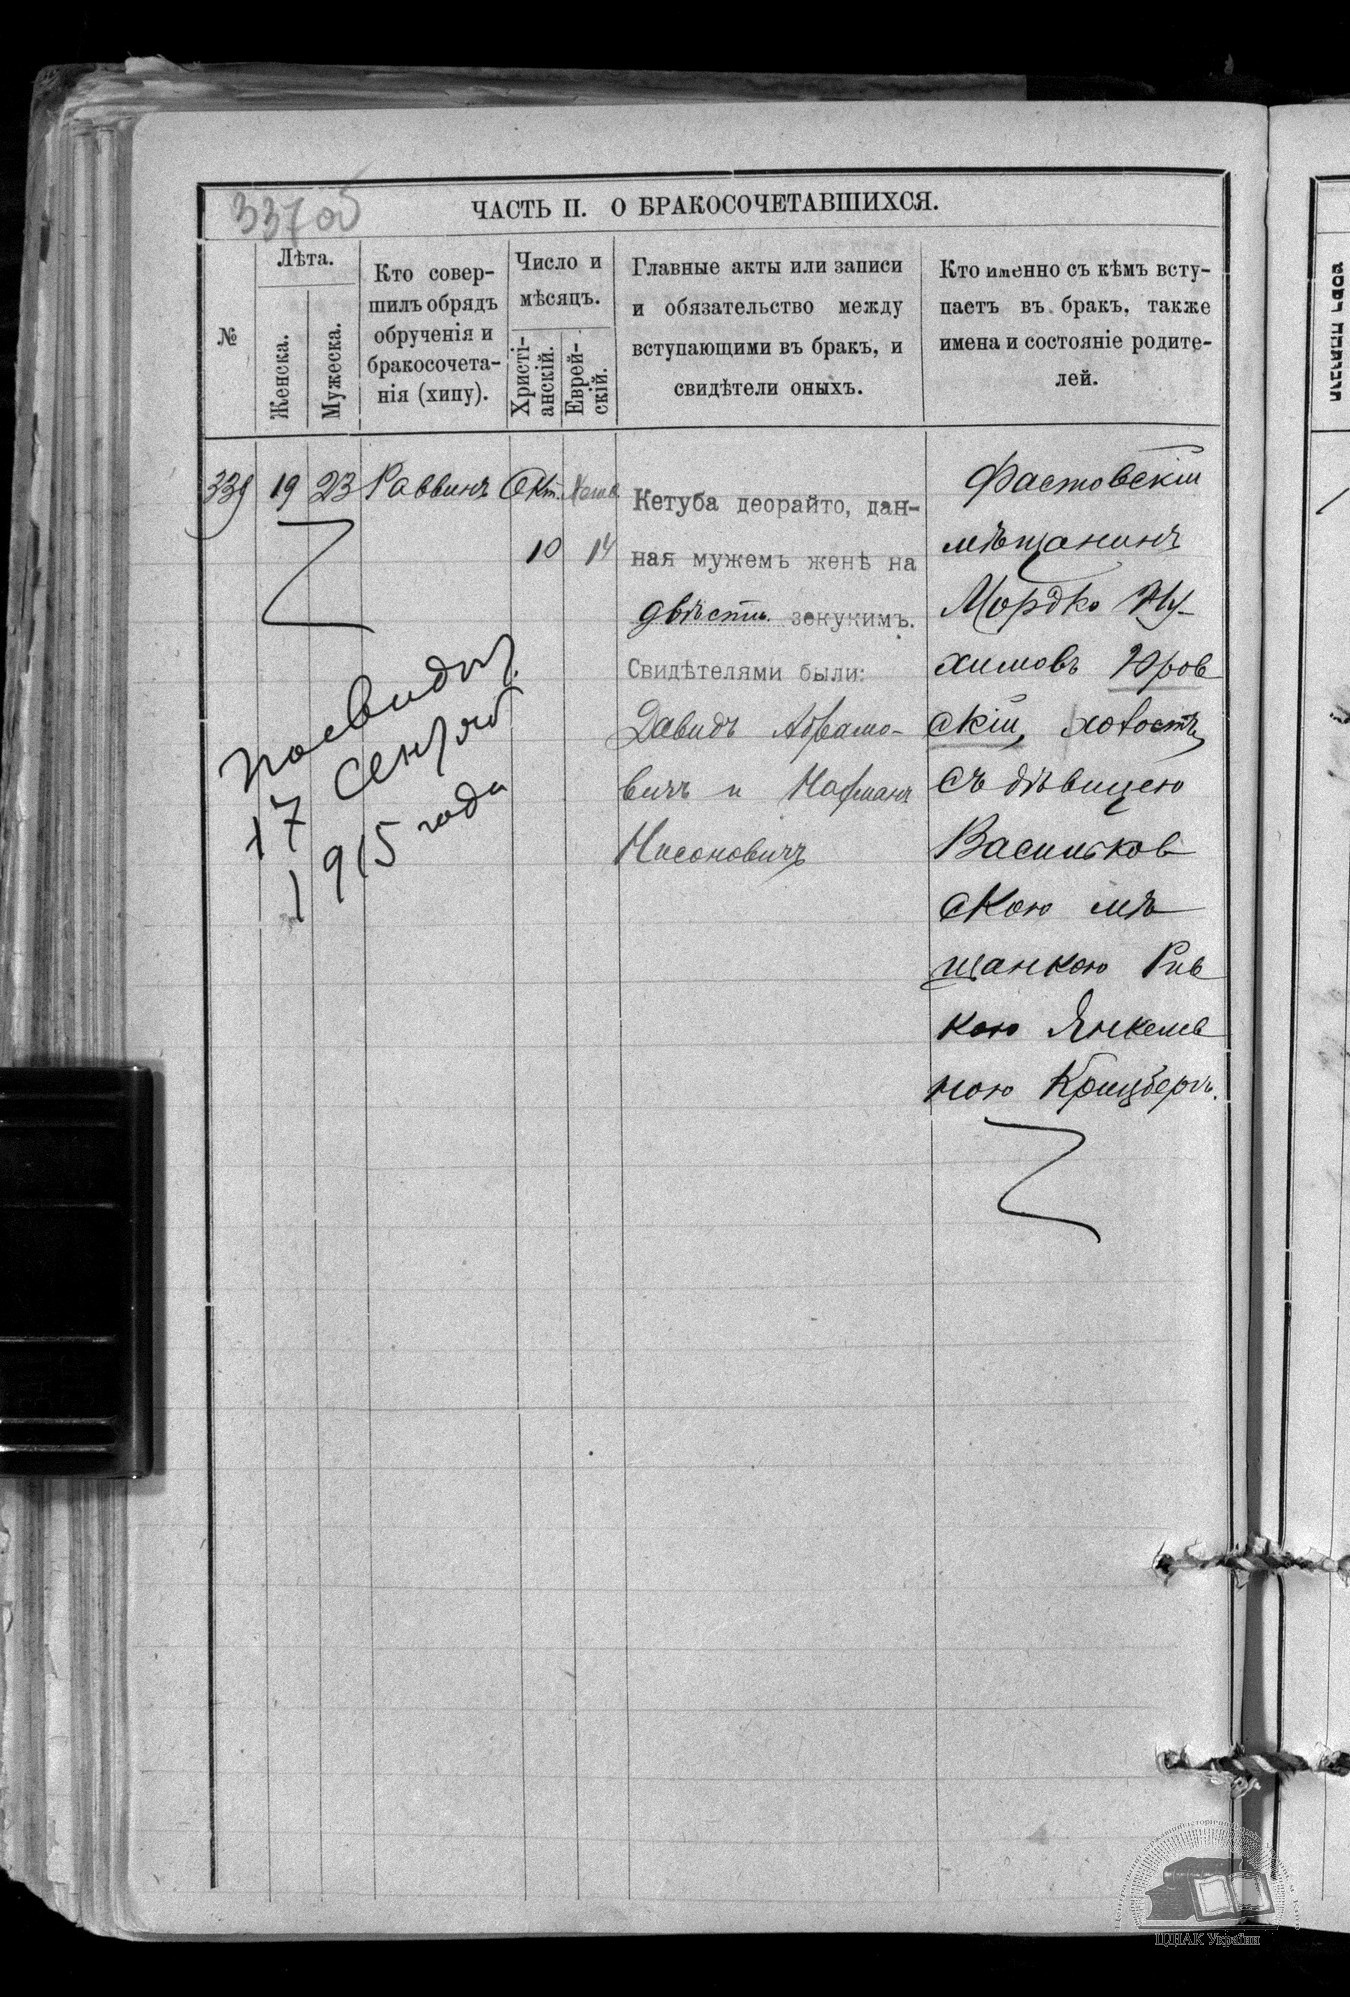 337 об
ЧАСТЬ II. О БРАКОСОЧЕТАВШИХСЯ.
№
Лѣта.
Женска.
Мужеска.
Кто совер-
шилъ обрядъ
обрученія и
бракосочета-
нія (хипу).
Число и
мѣсяцъ.
Христі-
анскій.
Еврей-
скій.
Главные акты или записи
и обязательство между
вступающими въ бракъ, и
свидѣтели оныхъ.
Кто именно съ кѣмъ всту-
паетъ въ бракъ, также
имена и состояніе родите-
лей.
339 19 23 Раввинъ Окт. Хешв.
10 14
Кетуба деорайто, дан-
ная мужемъ женѣ на
двѣсти зекукимъ.
Свидѣтелями были:
Давидъ Абрамо-
вичъ и Нафманъ
Нисоновичъ
Фастовскій
мѣщанинъ
Мордко Ну-
химовъ Юров
скій, холостъ,
съ дѣвицею
Васильков
скою мѣ
щанкою Рив
кою Янкелев
ною Крицбергъ.
17 сентяб
1915 года
ЦДІАК України